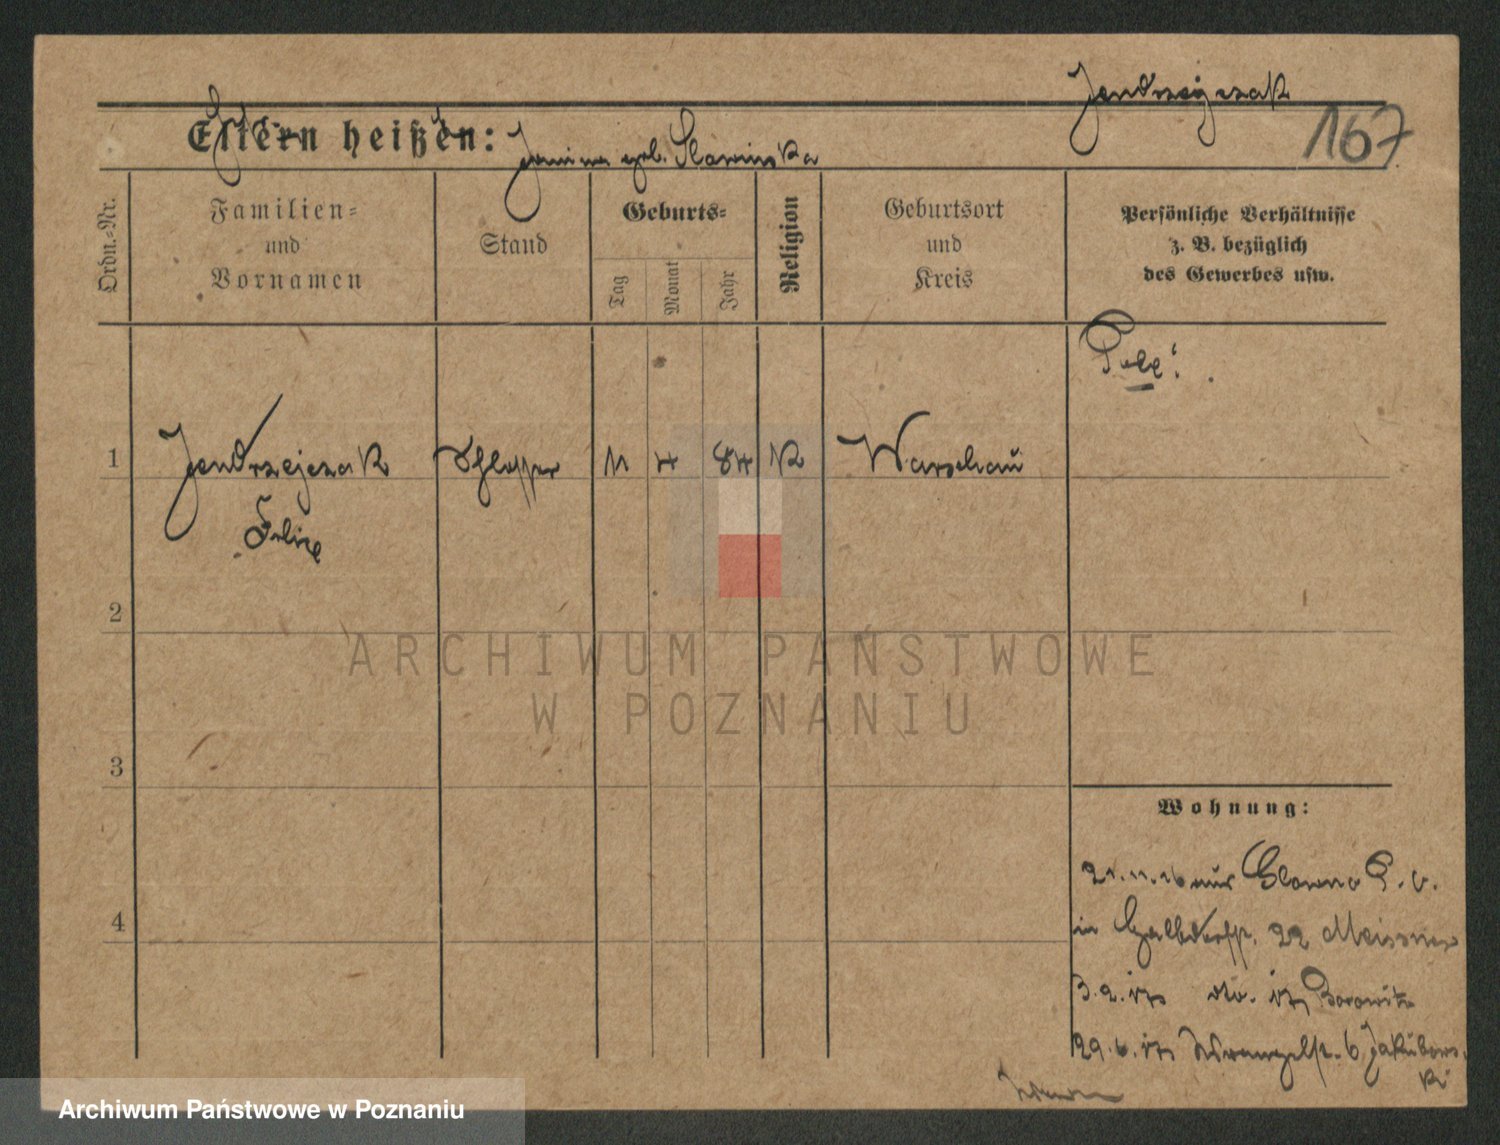 Jendrzejczak
167
Eltern heißen:
Janina geb. Slawinska
Ordn.-Nr.
Familien-
und
Vornamen
Stand
Geburts-
Tag
Monat
Jahr
Religion
Geburtsort
und
Kreis
Persönliche Verhältnisse
z. B. bezüglich
des Gewerbes usw.
Pole!
1
Jendrzejczak
Schlosser
11
4
84
K
Warschau
Felix
2
ARCHIWUM PAŃSTWOWE
W POZNANIU
3
Wohnung:
21.11.16 aus Glowno P. O.
4
in 22 Meissner
3.2.17 dto. 17 Borowitz
29.6.17 Wrangelstr. 6 Jakubows-
ki
Archiwum Państwowe w Poznaniu